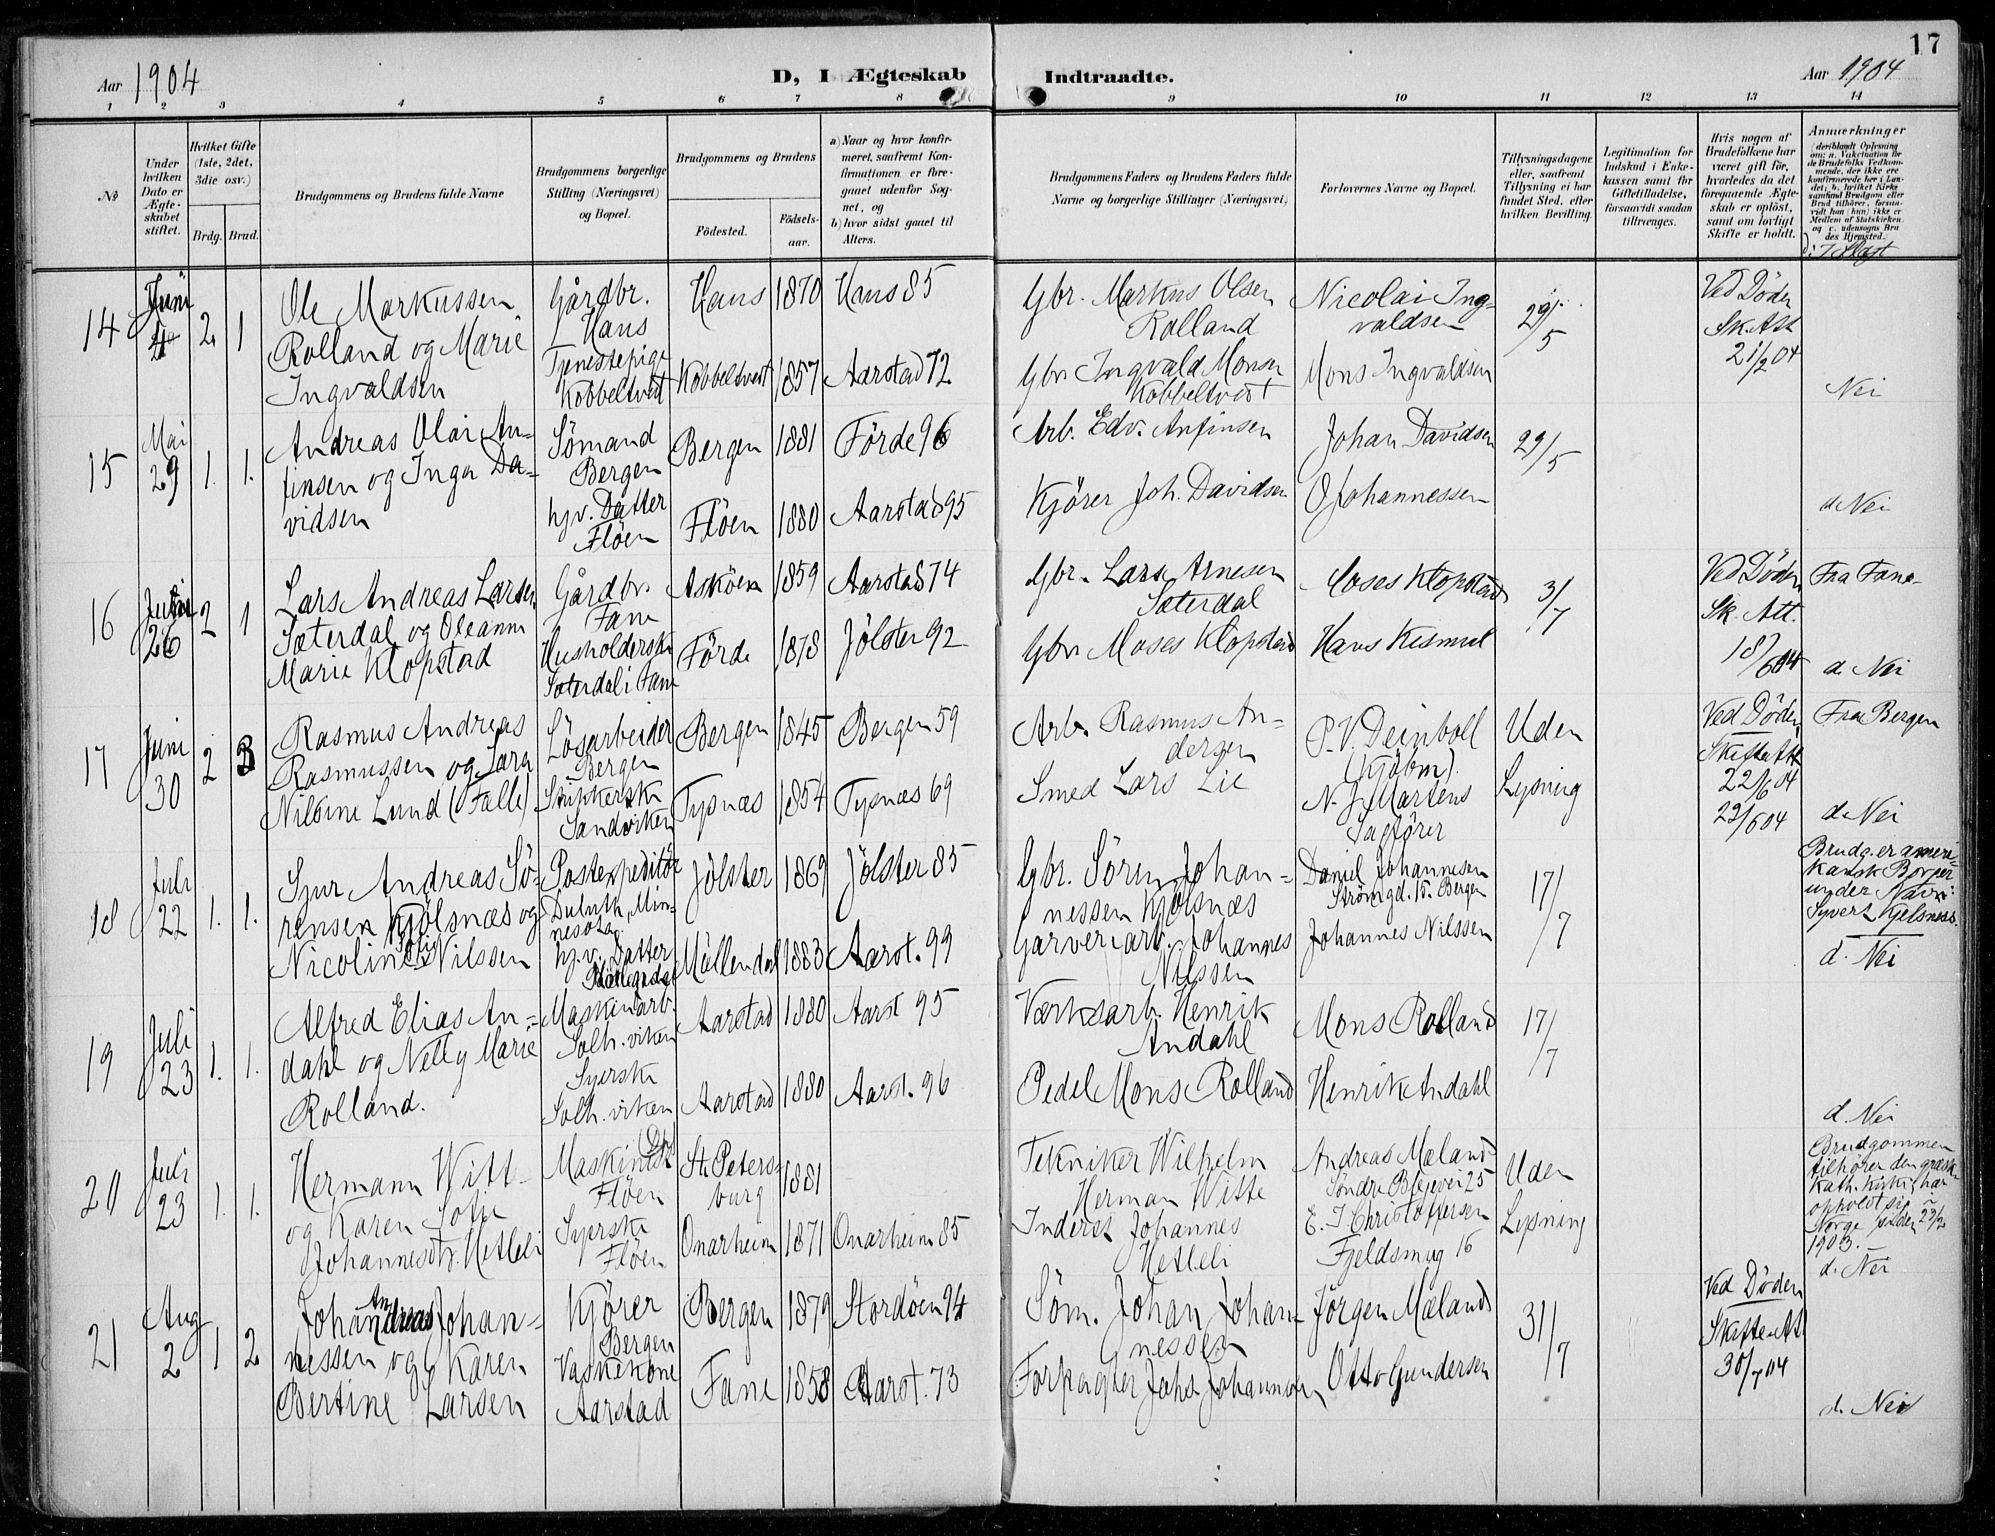 17
Aar 1904
D, I Ægteskab Indtraadte.
Aar 1904
1 2 3 4 5 6 7 8 9 10 11 12 13 14
No
Under hvilken Dato er Ægteskabet stiftet.
Hvilket Gifte (1ste, 2det, 3die osv.)
Brdg. Brud.
Brudgommens og Brudens fulde Navne
Brudgommens borgerlige Stilling (Næringsvei) og Bopæl.
Brudgommens og Brudens
Födested.
Födselsaar.
a) Naar og hvor konfirmeret, saafremt Konfirmationen er foregaaet udenfor Sognet, og
b) hvor sidst gaaet til Alters.
Brudgommens Faders og Brudens Faders fulde Navne og borgerlige Stillinger (Næringsvei)
Forlovernes Navne og Bopæl.
Tillysningsdagene eller, saafremt Tillysning ei har fundet Sted, efter hvilken Bevilling.
Legitimation for Indskud i Enkekassen samt for Giftetilladelse, forsaavidt saadan tiltrænges.
Hvis nogen af Brudefolkene har været gift før, hvorledes da det foregaaende Ægteskab er oplöst, samt om lovligt Skifte er holdt.
Anmærkninger (deriblandt Oplysning om: a. Vakcination for de Brudefolks Vedkommende, der ikke ere konfirmerede her i Landet; b. hvilket Kirkesamfund Brudgom eller Brud tilhörer, forsaavidt han (hun) ikke er Medlem af Statskirken, og c. udensogns Brudes Hjemsted.
14
Juni
4
2. 1
Ole Markussen
Rolland og Marie
Ingvaldsen
Gårdbr.
Haus
Tjenestepige
Kobbeltvedt
Haus 1870 Haus 85
Kobbeltvedt 1857 Aarstad 72
Gbr. Markus Olsen
Rolland
Gbr Ingvald Monsen
Kobbeltvedt
Nicolai Ing-
valdsen
Mons Ingvaldsen
29/5
Ved Døden
Sk. Att
21/2 04
Nei
15
Mai
29
1. 1.
Andreas Olai An-
finsen og Inga Da-
vidsen
Sømand
Bergen
hjv. Datter
Fløen
Bergen 1881 Førde 96
Fløen 1880 Aarstad 95
Arb. Edv. Anfinsen
Kjører Joh. Davidsen
Johan Davidsen
O Johannessen
29/5
d. Nei
16
26
2 1
Lars Andreas Larsen
Sæterdal og Oleanna
Marie Klopstad
Gårdbr
Fane
Husholderske
Sæterdal i Fane
Askøen 1859 Aarstad 74
Førde 1878 Jølster 92
Gbr. Lars Arnesen
Sæterdal
Gbr Moses Klopstad
Moses Klopstad
Hans Kismul
3/7
Ved Døden
Sk. Att.
18/6 04
Fra Fane
d. Nei
17
Juni
30
2 3
Rasmus Andreas
Rasmussen og Sara
Nilsine Lund (Falle)
Løsarbeider
Bergen
Strikkerske
Sandviken
Bergen 1845 Bergen 59
Tysnæs 1854 Tysnæs 69
Arb. Rasmus An-
dersen
Smed Lars Lie
P. V. Deinboll
(Kjøbm).
N. J. Martens
Sagfører
Uden
Lysning
Ved Døden
Skifte Att
22/6 04
23/6 04
Fra Bergen
d. Nei
18
Juli
22
1. 1.
Sjur Andreas Sø-
rensen Kjølsnæs og
Nicoline Sofie Nilssen
Postexpeditør
Duluth, Min-
nesota.
hjv. Datter
Møllendal
Jølster 1869 Jølster 85
Møllendal 1883 Aarst. 99
Gbr. Søren Johan-
nessen Kjølsnæs
Garveriarb. Johannes
Nilssen
Daniel Johannesen
Strømgd. 15. Bergen
Johannes Nilssen
17/7
Brudg. er ameri-
kansk Borger
under Navn:
Syvert Kjelsness.
d. Nei
19
Juli
23
1. 1.
Alfred Elias An-
dahl og Nelly Marie
Rolland.
Maskinarb.
Solh. viken
Syerske
Solh. viken
Aarstad 1880 Aarst 95
Aarstad 1880 Aarst. 96
Værksarb. Henrik
Andahl
Pedel Mons Rolland
Mons Rolland
Henrik Andahl
17/7
d. Nei
20
Juli
23
1. 1.
Hermann Witt
og Karen Sofie
Johannesdtr. Hetleli
Maskinist
Fløen
Syerske
Fløen
St. Peters-
burg 1881
Onarheim 1871 Onarheim 85
Tekniker Wilhelm
Herman Witte
Inderst Johannes
Hetleli
Andreas Mæland
Søndre Blegevei 25
E. J. Christoffersen
Fjeldsmug 16
Uden
Lysning
Brudgommen
tilhører den græsk
kath. kirke, har
opholdt sig i
Norge siden 29/2
1903.
d. Nei
21
Aug
2
1 2
Johan Andreas Johan-
nessen og Karen
Bertine Larsen
Kjører
Bergen
Vaskekone
Aarstad
Bergen 1879 Stordøen 94
Fane 1858 Aarst. 73
Søm. Johan Johan-
nessen
Forpagter Johs. Johannesen
Jørgen Mæland
Otto Gundersen
31/7
Ved Døden
Skifte Att
30/7 04
d. Nei